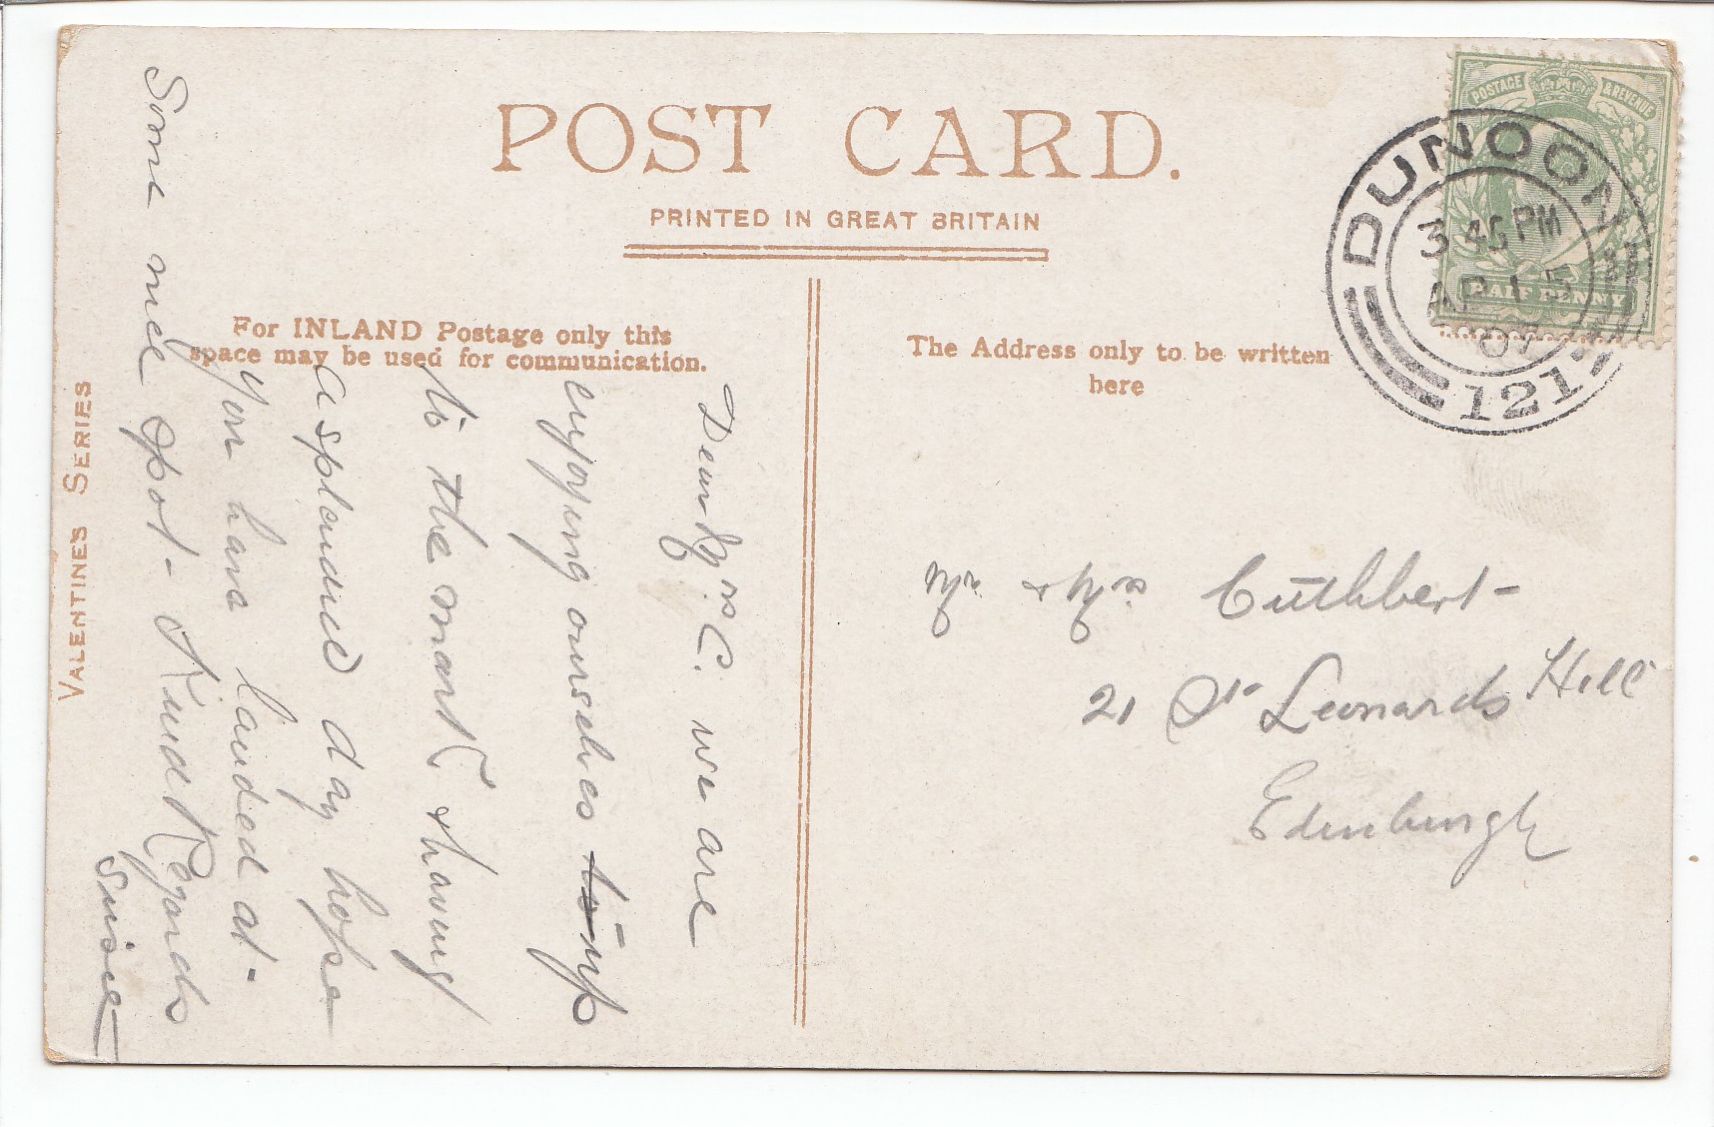 POST CARD.
PRINTED IN GREAT BRITAIN
For INLAND Postage only this
space may be used for communication.
The Address only to be written
here
POSTAGE & REVENUE
HALF PENNY
DUNOON
3 45 PM
AP 15
07
121
VALENTINES SERIES
Dear Mrs C. we are
enjoying ourselves
to the mark & having
a splendid day hope
you have landed at
Some nice spot - Kind Regards
Mr. & Mrs. Cuthbert
21 St Leonards Hill
Edinburgh